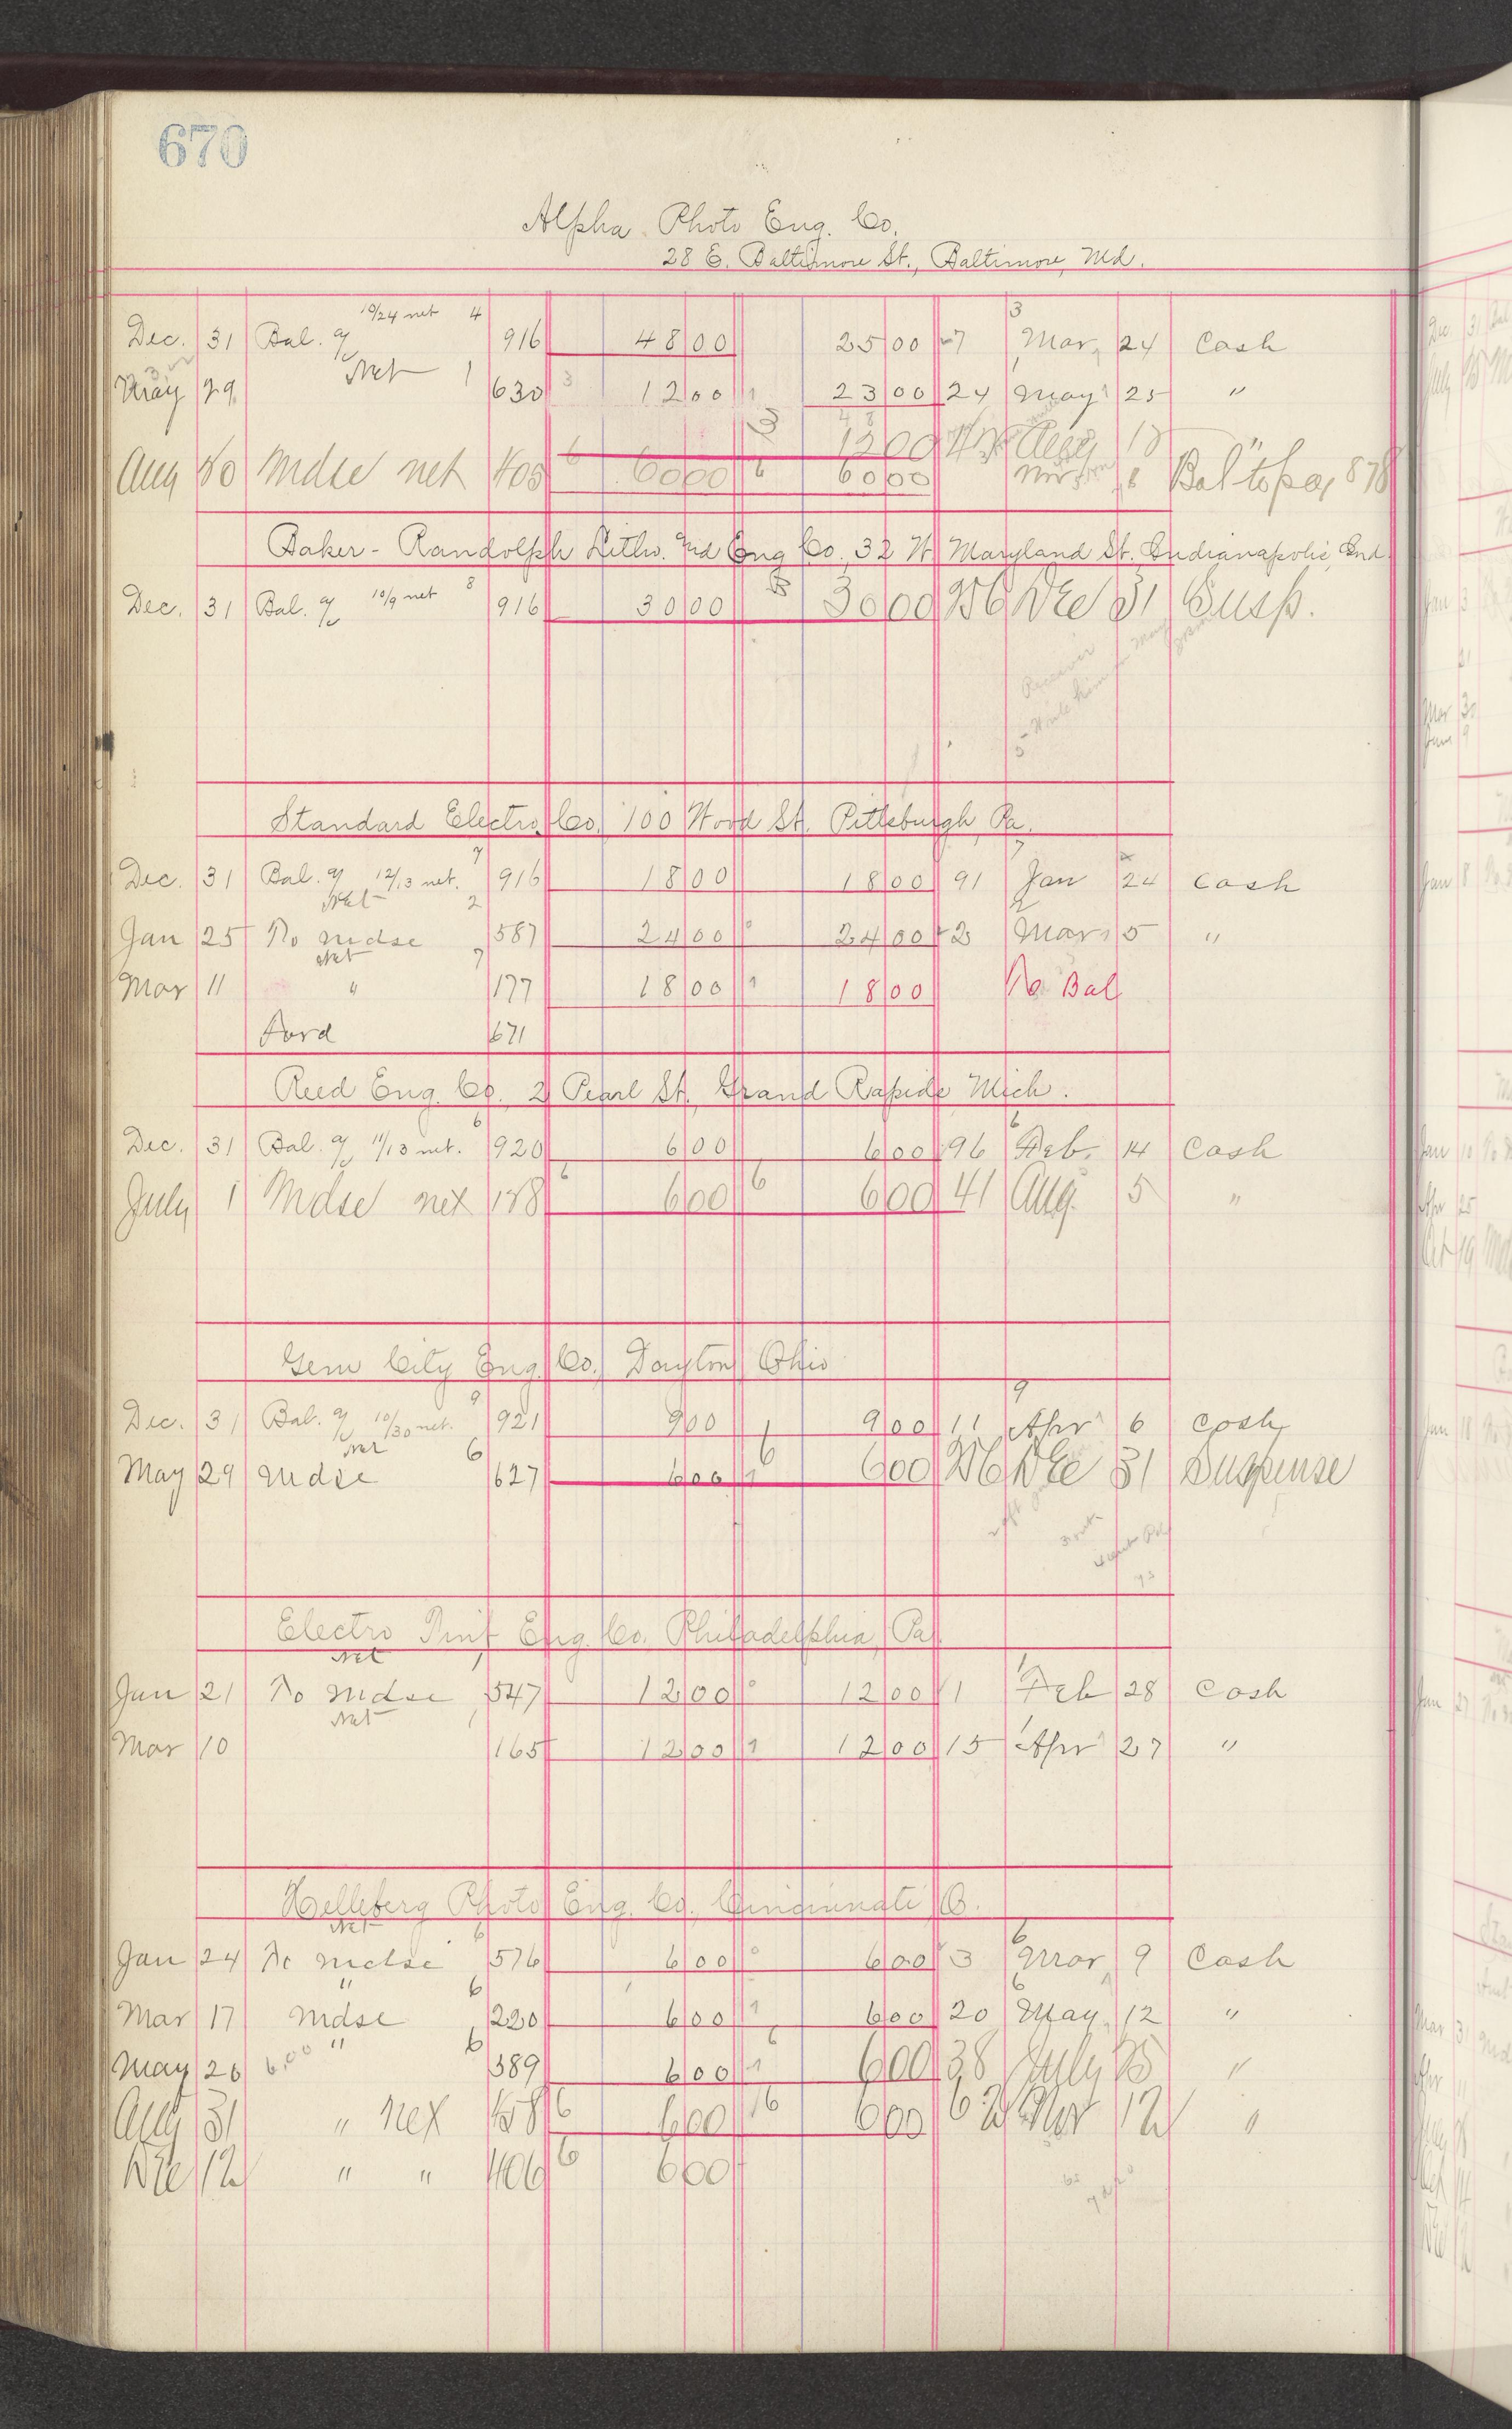 670
Alpha Photo Eng. Co.
28 E. Baltimore St., Baltimore, Md.
Dec. 31 Bal. a/c 10/24 net 4 916 48 00 25 00 7 3 Mar 24 Cash
May 29 Net 1 630 3 12 00 1 23 00 24 May 25 "
12 00 Aug 18 "
Aug 30 Mdse net 405 6 60 00 6 60 00 Bal to pag 878
Baker - Randolph Litho. and Eng Co. 32 W. Maryland St. Indianapolis, Ind.
Dec. 31 Bal. a/c 10/9 net 8 916 30 00 30 00 256 Dec 31 Susp.
Receiver
Standard Electro. Co. 100 Wood St. Pittsburgh, Pa.
Dec. 31 Bal. a/c 12/13 net. 7 916 18 00 18 00 91 7 Jan 24 Cash
Jan 25 To mdse Net 2 587 24 00 0 24 00 2 2 Mar 5 "
Mar 11 Net " 7 177 18 00 1 18 00 To Bal
Ford 671
Reed Eng. Co. 2 Pearl St. Grand Rapids Mich.
Dec. 31 Bal. a/c 11/13 net. 6 920 6 00 6 00 96 6 Feb. 14 Cash
July 1 Mdse net 188 6 6 00 6 6 00 41 Aug. 5 "
Gem City Eng. Co. Dayton, Ohio
Dec. 31 Bal. a/c 10/30 net. 9 921 9 00 1 9 00 11 9 Apr 6 Cash
May 29 Mdse Net 6 627 6 00 1 6 6 00 256 Dec 31 Suspense
Electro Tint Eng. Co. Philadelphia, Pa.
Jan 21 To Mdse Net 1 547 12 00 0 12 00 1 1 Feb 28 Cash
Mar 10 Net 1 165 12 00 1 12 00 15 1 Apr 27 "
Helleberg Photo Eng. Co. Cincinnati, O.
Jan 24 To mdse Net 6 576 6 00 0 6 00 3 6 Mar 9 Cash
Mar 17 mdse " 6 220 6 00 1 6 00 20 6 May 12 "
May 26 6.00 " 6 589 6 00 1 6 6 00 38 July 25 "
Aug 31 " net 458 6 6 00 16 6 00 62 Nov 12 "
Dec 12 " " 406 6 6 00